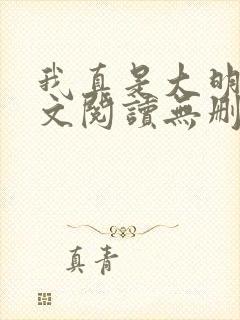 我真是大明
文閱讀無刪
真青